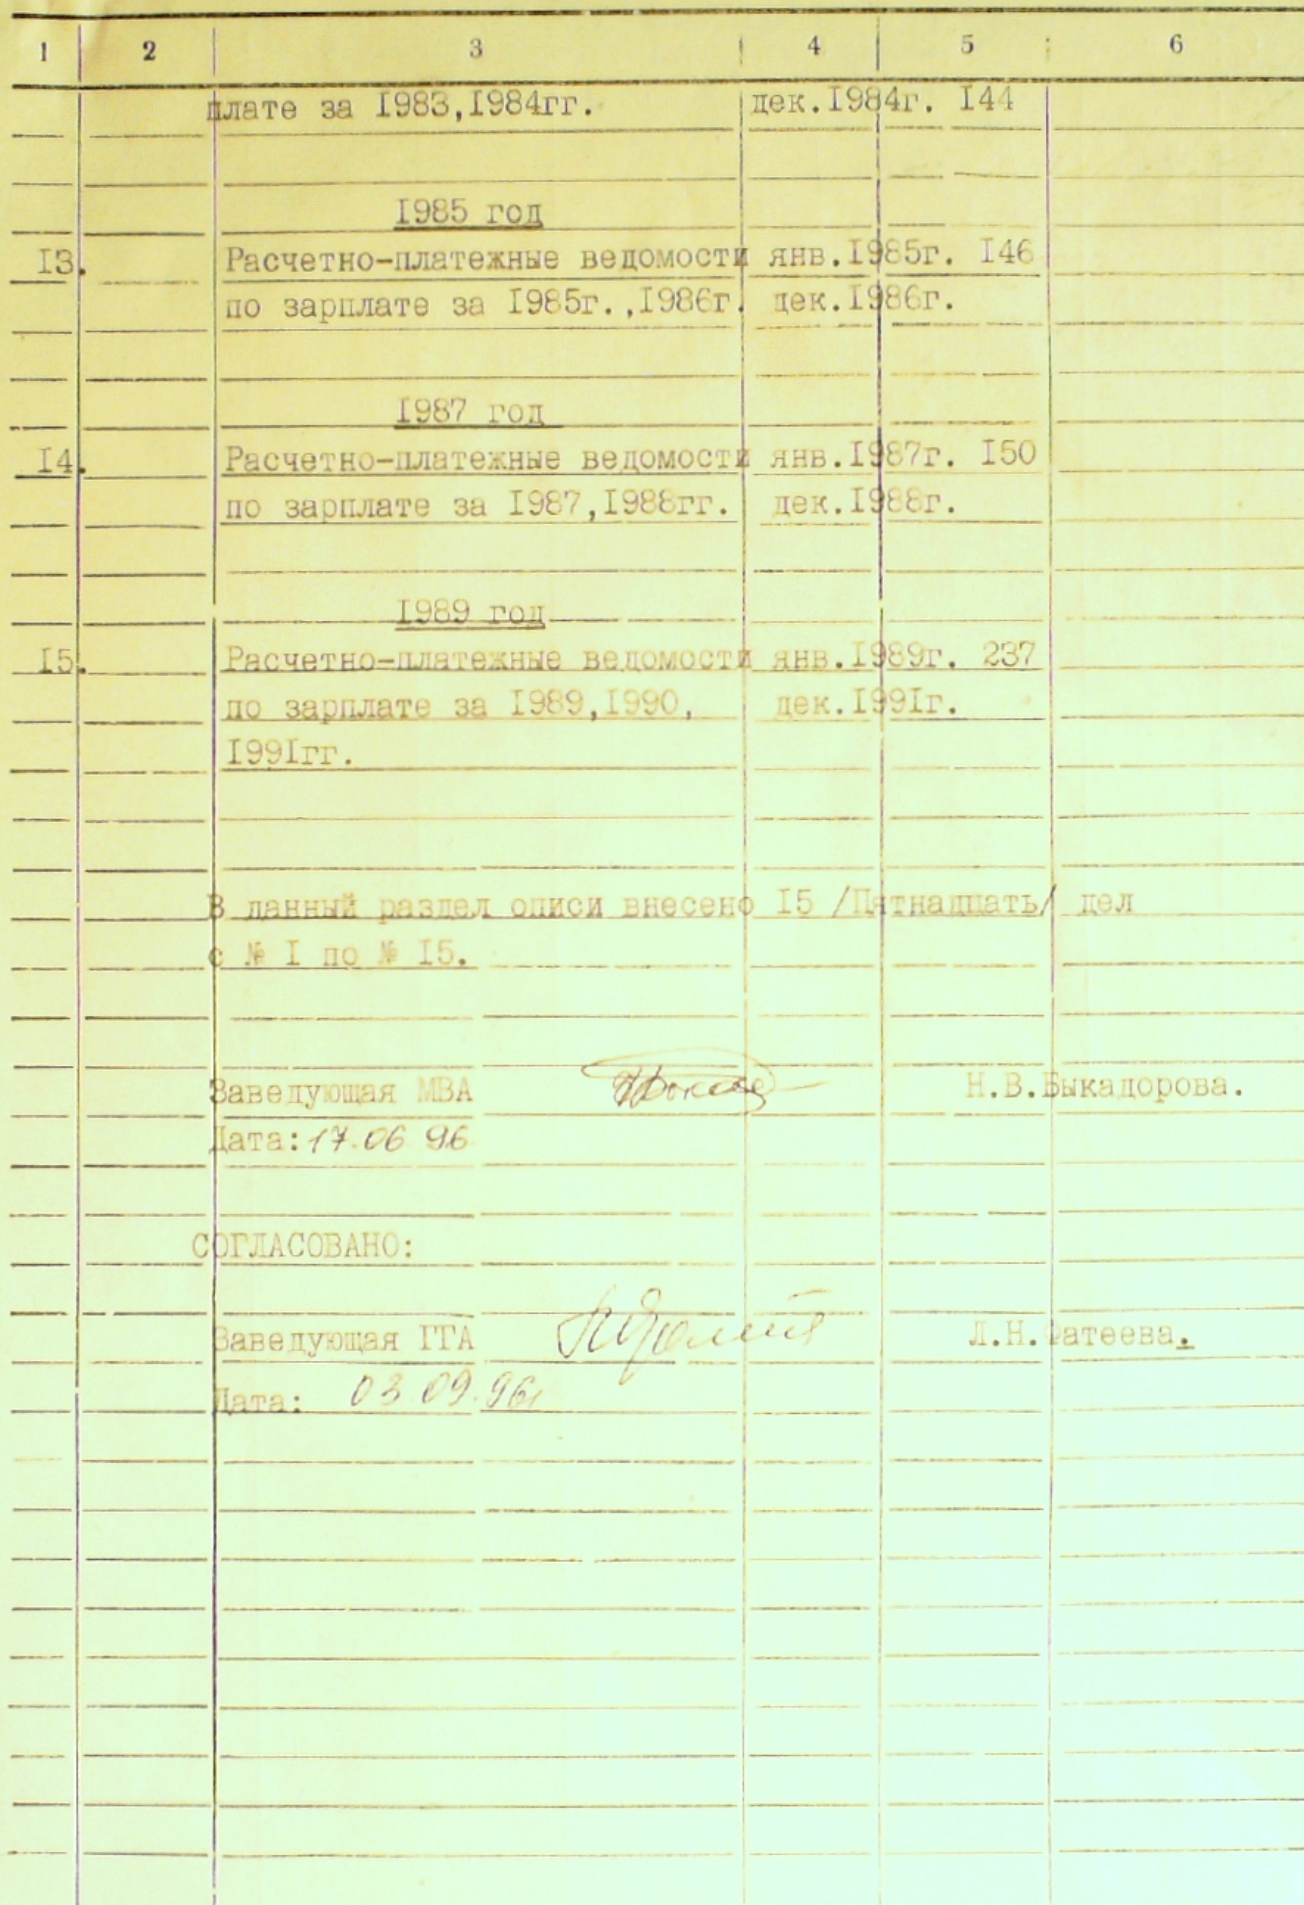 1 2 3 4 5 6
плате за I983,I984гг. дек.I984г. I44
I985 год
I3. Расчетно-платежные ведомости янв.I985г. I46
по зарплате за I985г.,I986г. дек.I986г.
I987 год
I4. Расчетно-платежные ведомости янв.I987г. I50
по зарплате за I987,I988гг. дек.I988г.
I989 год
I5. Расчетно-платежные ведомости янв.I989г. 237
по зарплате за I989,I990, дек.I99Iг.
I99Iгг.
В данный раздел описи внесено I5 /Пятнадцать/ дел
с № I по № I5.
Заведующая МВА Н.В.Быкадорова.
Дата: 17.06 96
СОГЛАСОВАНО:
Заведующая ГГА Л.Н.Фатеева.
Дата: 03.09.96г